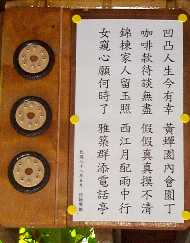 凹凸人生今有幸　黃蟬園內會園丁
咖啡款待談無盡　假假真真摸不清
錦棟家人留玉照　西江月配雨中行
女窺心願何時了　雅築群添電話亭